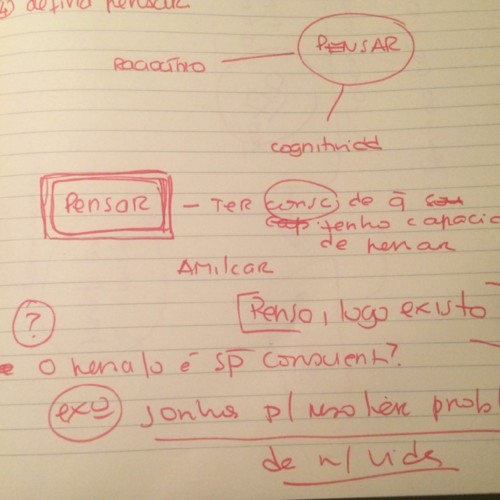 4) defina pensar
PENSAR
raciocínio
cognitividd
Pensar - TER consc de q̄
tenho capacid
de pensar
AMILCAR
?
Penso, logo existo
O pensa/o é sp̄ conscient?
exº sonhos p/ resolver probl
de n/ vida